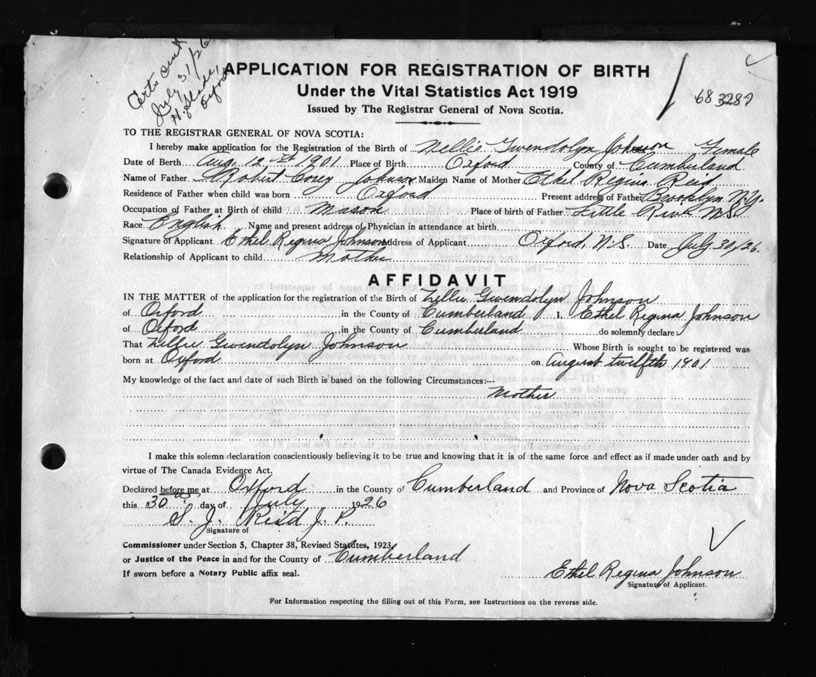 Certs sent
July 31/26
Oxford
683287
APPLICATION FOR REGISTRATION OF BIRTH
Under the Vital Statistics Act 1919
Issued by The Registrar General of Nova Scotia.
TO THE REGISTRAR GENERAL OF NOVA SCOTIA:
I hereby make application for the Registration of the Birth of Nellie Gwendolyn Johnson Female
Date of Birth Aug. 12 1901 Place of Birth Oxford County of Cumberland
Name of Father Robert Corey Johnson Maiden Name of Mother Ethel Regina Reid
Residence of Father when child was born Oxford Present address of Father Brooklyn N.Y.
Occupation of Father at Birth of child Mason Place of birth of Father Little River N.S.
Race English Name and present address of Physician in attendance at birth
Signature of Applicant Ethel Regina Johnson Address of Applicant Oxford, N.S. Date July 30/26.
Relationship of Applicant to child Mother
AFFIDAVIT
IN THE MATTER of the application for the registration of the Birth of Nellie Gwendolyn Johnson
of Oxford in the County of Cumberland I, Ethel Regina Johnson
of Oxford in the County of Cumberland do solemnly declare:
That Nellie Gwendolyn Johnson Whose Birth is sought to be registered was
born at Oxford on August twelfth 1901
My knowledge of the fact and date of such Birth is based on the following Circumstances:—
Mother
I make this solemn declaration conscientiously believing it to be true and knowing that it is of the same force and effect as if made under oath and by
virtue of The Canada Evidence Act.
Declared before me at Oxford in the County of Cumberland and Province of Nova Scotia
this 30 day of July 1926
S. J. Reid J. P.
Signature of
Commissioner under Section 5, Chapter 38, Revised Statutes, 1923,
or Justice of the Peace in and for the County of Cumberland
If sworn before a Notary Public affix seal.
Ethel Regina Johnson
Signature of Applicant.
For Information respecting the filling out of this Form, see Instructions on the reverse side.